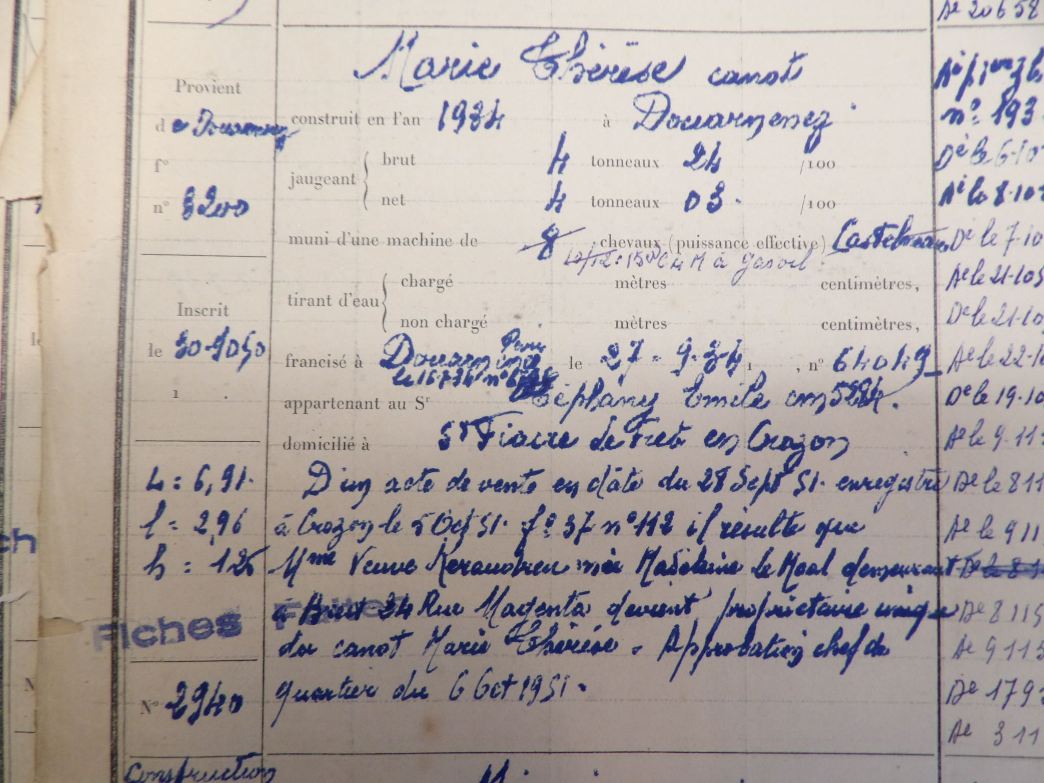 De 20658
Marie Thérèse canot
Provient
de Douarnenez
f°
n° 3200
construit en l'an 1934 à Douarnenez
jaugeant { brut 4 tonneaux 24 /100
net 4 tonneaux 03. /100
muni d'une machine de 8 chevaux (puissance effective)
15 à gasoil
tirant d'eau { chargé mètres centimètres,
non chargé mètres centimètres,
Inscrit
le 30-9-50
francisé à Douarnenez le 27-9-34, n° 64049
le 16-7-34 n°
appartenant au Sr Téphany Emile cm 5284.
domicilié à St Fiacre de Fret en Crozon
L = 6,91.
l = 2,96
h = 1,25
D'un acte de vente en date du 28 Sept 51. enregistré
à Crozon le 5 Oct 51. f° 37 n° 112 il résulte que
Mme Veuve née Madeleine le Moal demeurant
à Brest 34 Rue Magenta devient propriétaire unique
du canot Marie Thérèse. Approbation chef de
quartier du 6 Oct 1951.
Fiches Faites
N° 2940
Construction
n° 193
De le 6-10
Ae le 8-10
De le 7-10
Ae le 21-10
De le 21-10
Ae le 22-1
De le 19-10
Ae le 9-11
De le 811
Ae le 911
De le 8
De 8115
Ae 9115
De 1792
Ae 311
ch